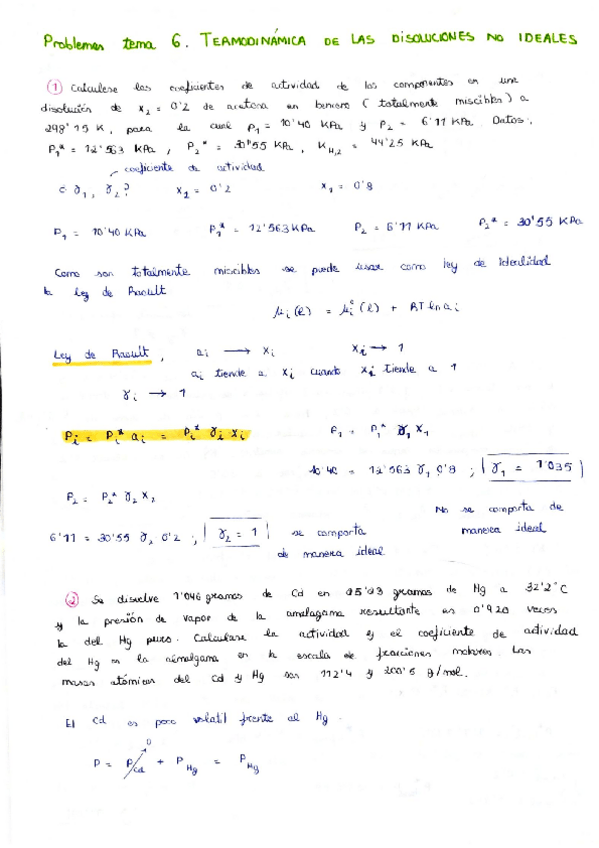 Problemas tema 6. TERMODINÁMICA DE LAS DISOLUCIONES NO IDEALES
① Calculese los coeficientes de actividad de los componentes en una
disolución de x₂ = 0'2 de acetona en benceno (totalmente miscibles) a
298'15 K, para la cual P₁ = 10'40 KPa y P₂ = 6'11 KPa. Datos:
P₁* = 12'563 KPa, P₂* = 30'55 KPa, K_H,2 = 44'25 KPa
coeficiente de actividad
¿ γ₁, γ₂? x₂ = 0'2 x₁ = 0'8
P₁ = 10'40 KPa P₁* = 12'563 KPa P₂ = 6'11 KPa P₂* = 30'55 KPa
Como son totalmente miscibles se puede usar como ley de idealidad
la ley de Raoult
μᵢ(l) = μᵢ°(l) + RT ln aᵢ
Ley de Raoult, aᵢ → xᵢ xᵢ → 1
aᵢ tiende a xᵢ cuando xᵢ tiende a 1
γᵢ → 1
Pᵢ = Pᵢ* aᵢ = Pᵢ* γᵢ xᵢ P₁ = P₁* γ₁ x₁
10'40 = 12'563 γ₁ 0'8 ; γ₁ = 1'035
P₂ = P₂* γ₂ x₂ No se comporta de
6'11 = 30'55 γ₂ 0'2 ; γ₂ = 1 se comporta manera ideal
de manera ideal
② Se disuelve 1'046 gramos de Cd en 25'23 gramos de Hg a 32'2°C
y la presión de vapor de la amalagama resultante es 0'920 veces
la del Hg puro. Calculase la actividad y el coeficiente de actividad
del Hg en la amalgama en la escala de fracciones molares. Las
masas atómicas del Cd y Hg son 112'4 y 200'6 g/mol.
El Cd es poco volatil frente al Hg.
P = P_Cd⁰ + P_Hg = P_Hg